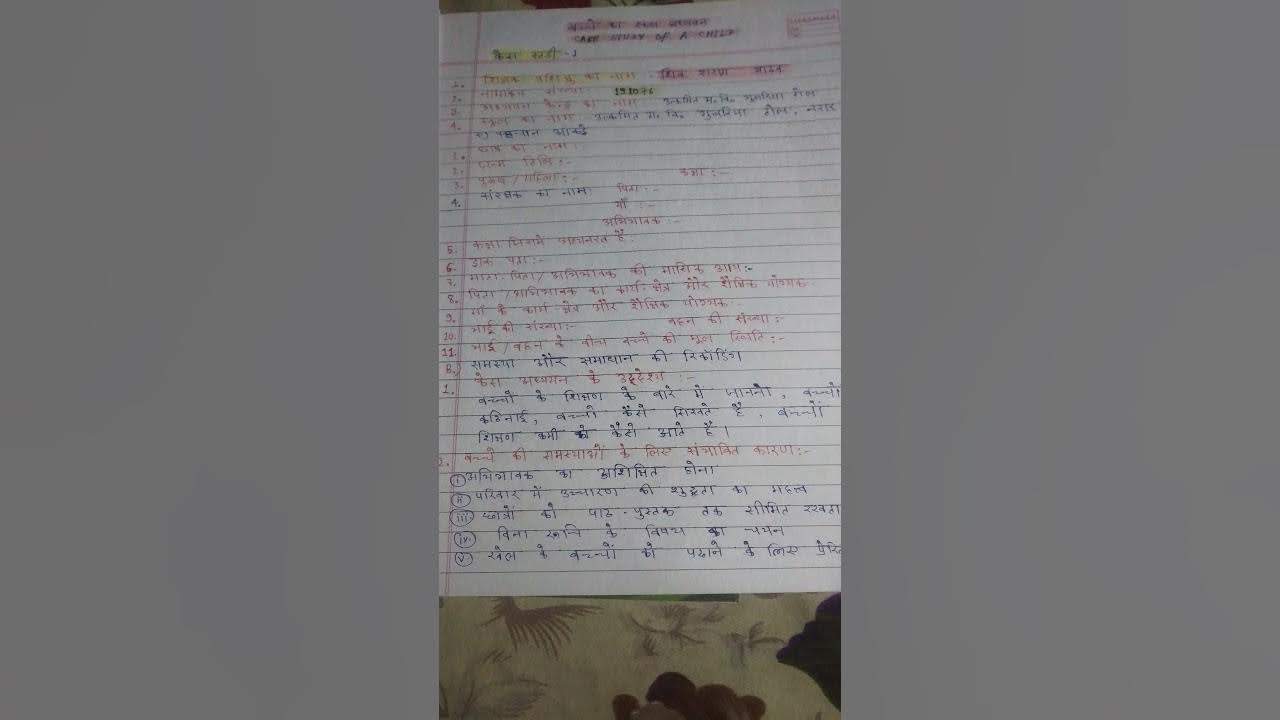 बच्चों का अध्ययन
CASE STUDY OF A CHILD
केस स्टडी - 1
1. शिक्षक का नाम शिव शरण यादव
2. नामांकन संख्या 191076
3. अध्ययन केन्द्र का नाम उत्क्रमित म. वि. गुलरिया टोल
4. स्कूल का नाम उत्क्रमित म. वि. गुलरिया टोल,
पहचान आंकड़े
1. छात्र का नाम :
2. जन्म तिथि :-
3. पुरुष / महिला :- कक्षा :-
4. संरक्षक का नाम पिता :-
माँ :-
अभिभावक :-
5. कक्षा जिसमें अध्यनरत है :
6. डाक पता :-
7. माता-पिता / अभिभावक की मासिक आय :-
8. पिता / अभिभावक का कार्य क्षेत्र और शैक्षिक योग्यक :-
9. माँ के कार्य क्षेत्र और शैक्षिक योग्यक :-
10. भाई की संख्या :- बहन की संख्या :-
11. भाई / बहन के बीच बच्चे की मूल स्थिति :-
B. समस्या और समाधान की रिकार्डिंग
1. केस अध्ययन के उद्देश्य :-
बच्चों के शिक्षण के बारे में जानना, बच्चों
कठिनाई, बच्चों कैसे सिखते है, बच्चों
शिक्षण कमी को कैसे आते है।
2. बच्चे की समस्याओं के लिए संभावित कारण :-
(i) अभिभावक का अशिक्षित होना
(ii) परिवार में उच्चारण की शुद्धता का महत्त्व
(iii) छात्रों को पाठ-पुस्तक तक सीमित रखना
(iv) बिना रूचि के विषय का चयन
(v) खेल के बच्चों को पढ़ाने के लिए